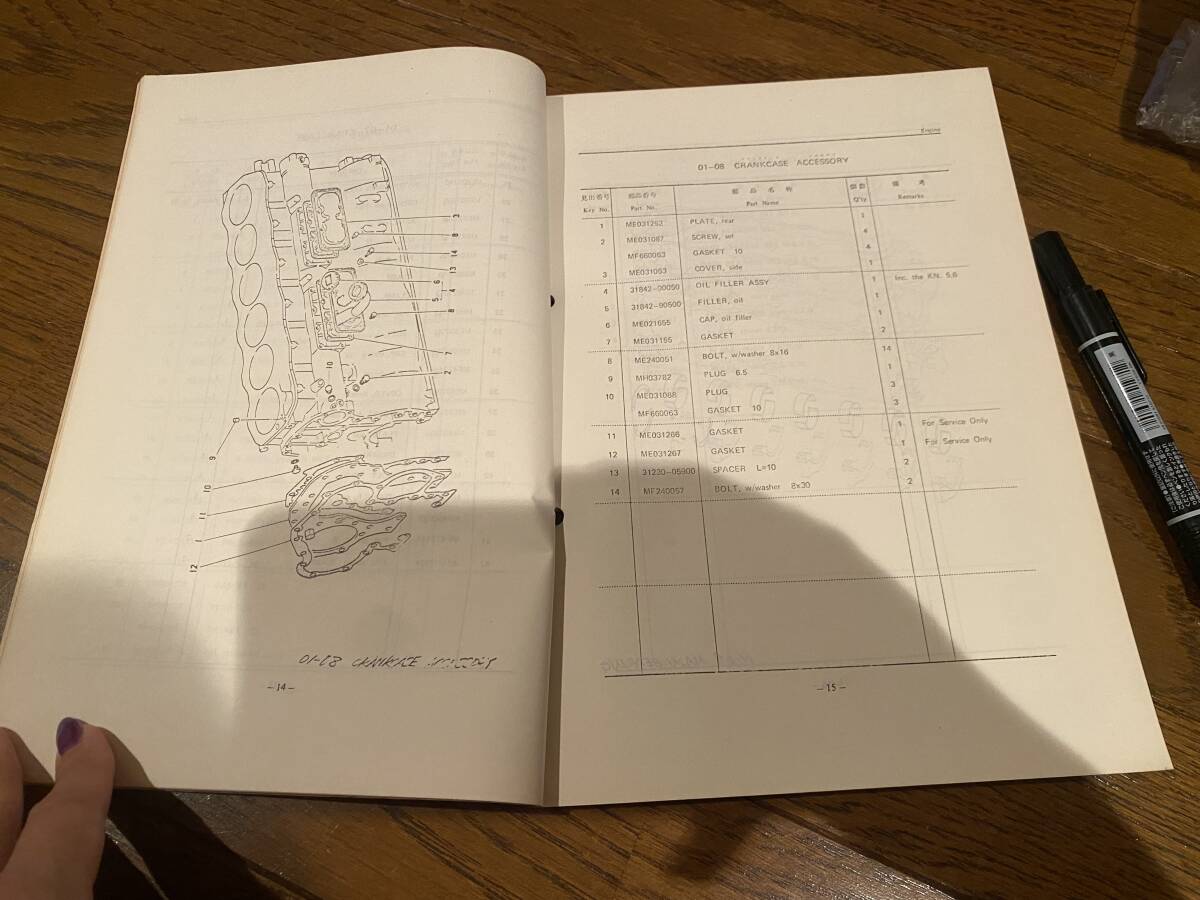 3
8
14
13
6
4
5
8
7
2
10
9
10
11
1
12
01-08 CRANKCASE
-14-
Engine
01-08 CRANKCASE ACCESSORY
見出番号 部品番号 部品名称 個数 備考
Key No. Part No. Part Name Q'ty Remarks
1 ME031262 PLATE, rear 1
2 ME031087 SCREW, set 4
MF660063 GASKET 10 4
3 ME031063 COVER, side 1
4 31842-00050 OIL FILLER ASSY 1 Inc. the KN. 5,6
5 31842-90500 FILLER, oil 1
6 ME021655 CAP, oil filler 1
7 ME031155 GASKET 2
8 ME240051 BOLT, w/washer 8x16 14
9 MH03782 PLUG 6.5 1
10 ME031088 PLUG 3
MF660063 GASKET 10 3
11 ME031266 GASKET 1 For Service Only
12 ME031267 GASKET 1 For Service Only
13 31230-05900 SPACER L=10 2
14 MF240057 BOLT, w/washer 8x30 2
-15-